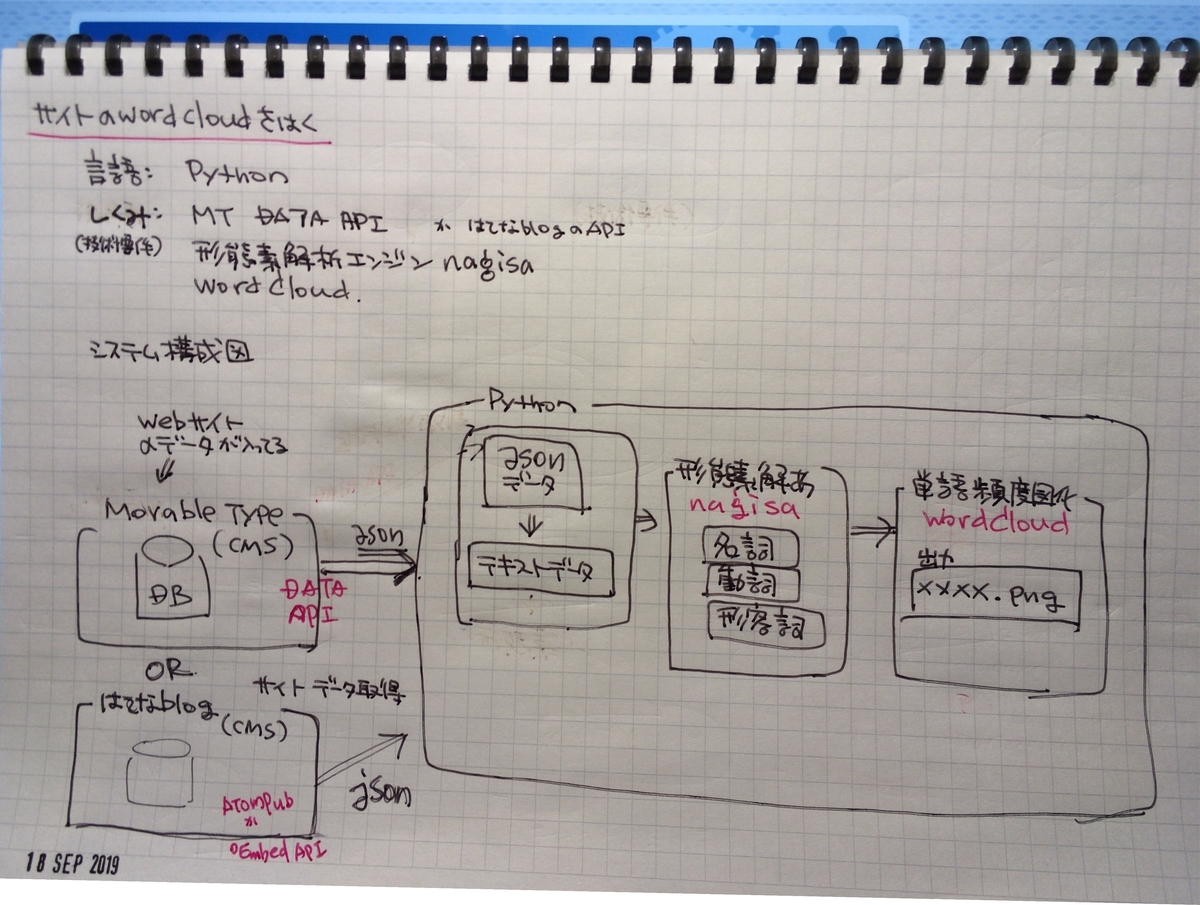 サイトのwordcloudをはく
言語: Python
しくみ: MT DATA API か はてなblogのAPI
(技術要件) 形態素解析エンジン nagisa
word cloud.
システム構成図
webサイト
のデータが入ってる
Movable Type
(CMS)
DB
DATA
API
json
OR
サイトデータ取得
はてなblog
(CMS)
AtomPub
か
oEmbed API
json
Python
json
データ
テキストデータ
形態素解析
nagisa
名詞
動詞
形容詞
単語頻度図化
wordcloud
出力
xxxx.png
18 SEP 2019